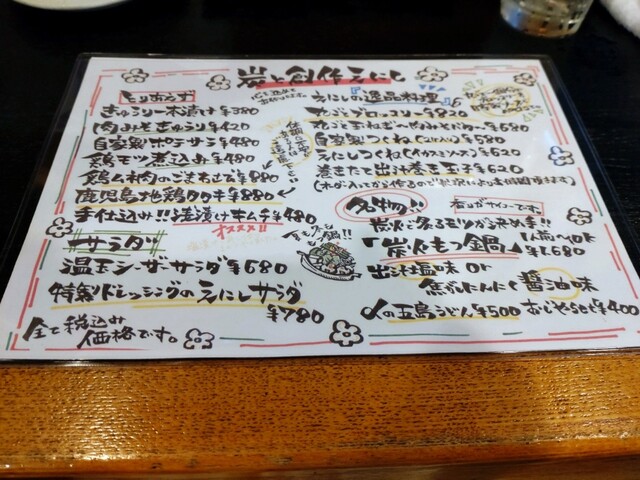 炭と創作えにし
とりあえず
きゅうり一本漬け ¥380
肉みそきゅうり ¥420
自家製ポテサラ ¥480
鶏モツ煮込み ¥480
鶏ムネ肉のごまわさびあえ ¥680
鹿児島地鶏タタキ ¥880
手仕込み!!浅漬けキムチ ¥480
オススメ!!
サラダ
温玉シーザーサラダ ¥680
特製ドレッシングのえにしサラダ
¥780
全て税込み
価格です。
えにしの『逸品料理』
丸ごとブロッコリー ¥820
丸ごと玉ねぎ ¥680
自家製つくね
えにしつくね ¥620
巻きたて出汁巻き玉子 ¥680
名物!!
香りがサイコーです。
炭火で炙るモツが決め手!!
「炭火もつ鍋」1人前
¥1,680
出汁塩味 or
焦がしにんにく醤油味
〆の五島うどん ¥500 おじやset ¥400